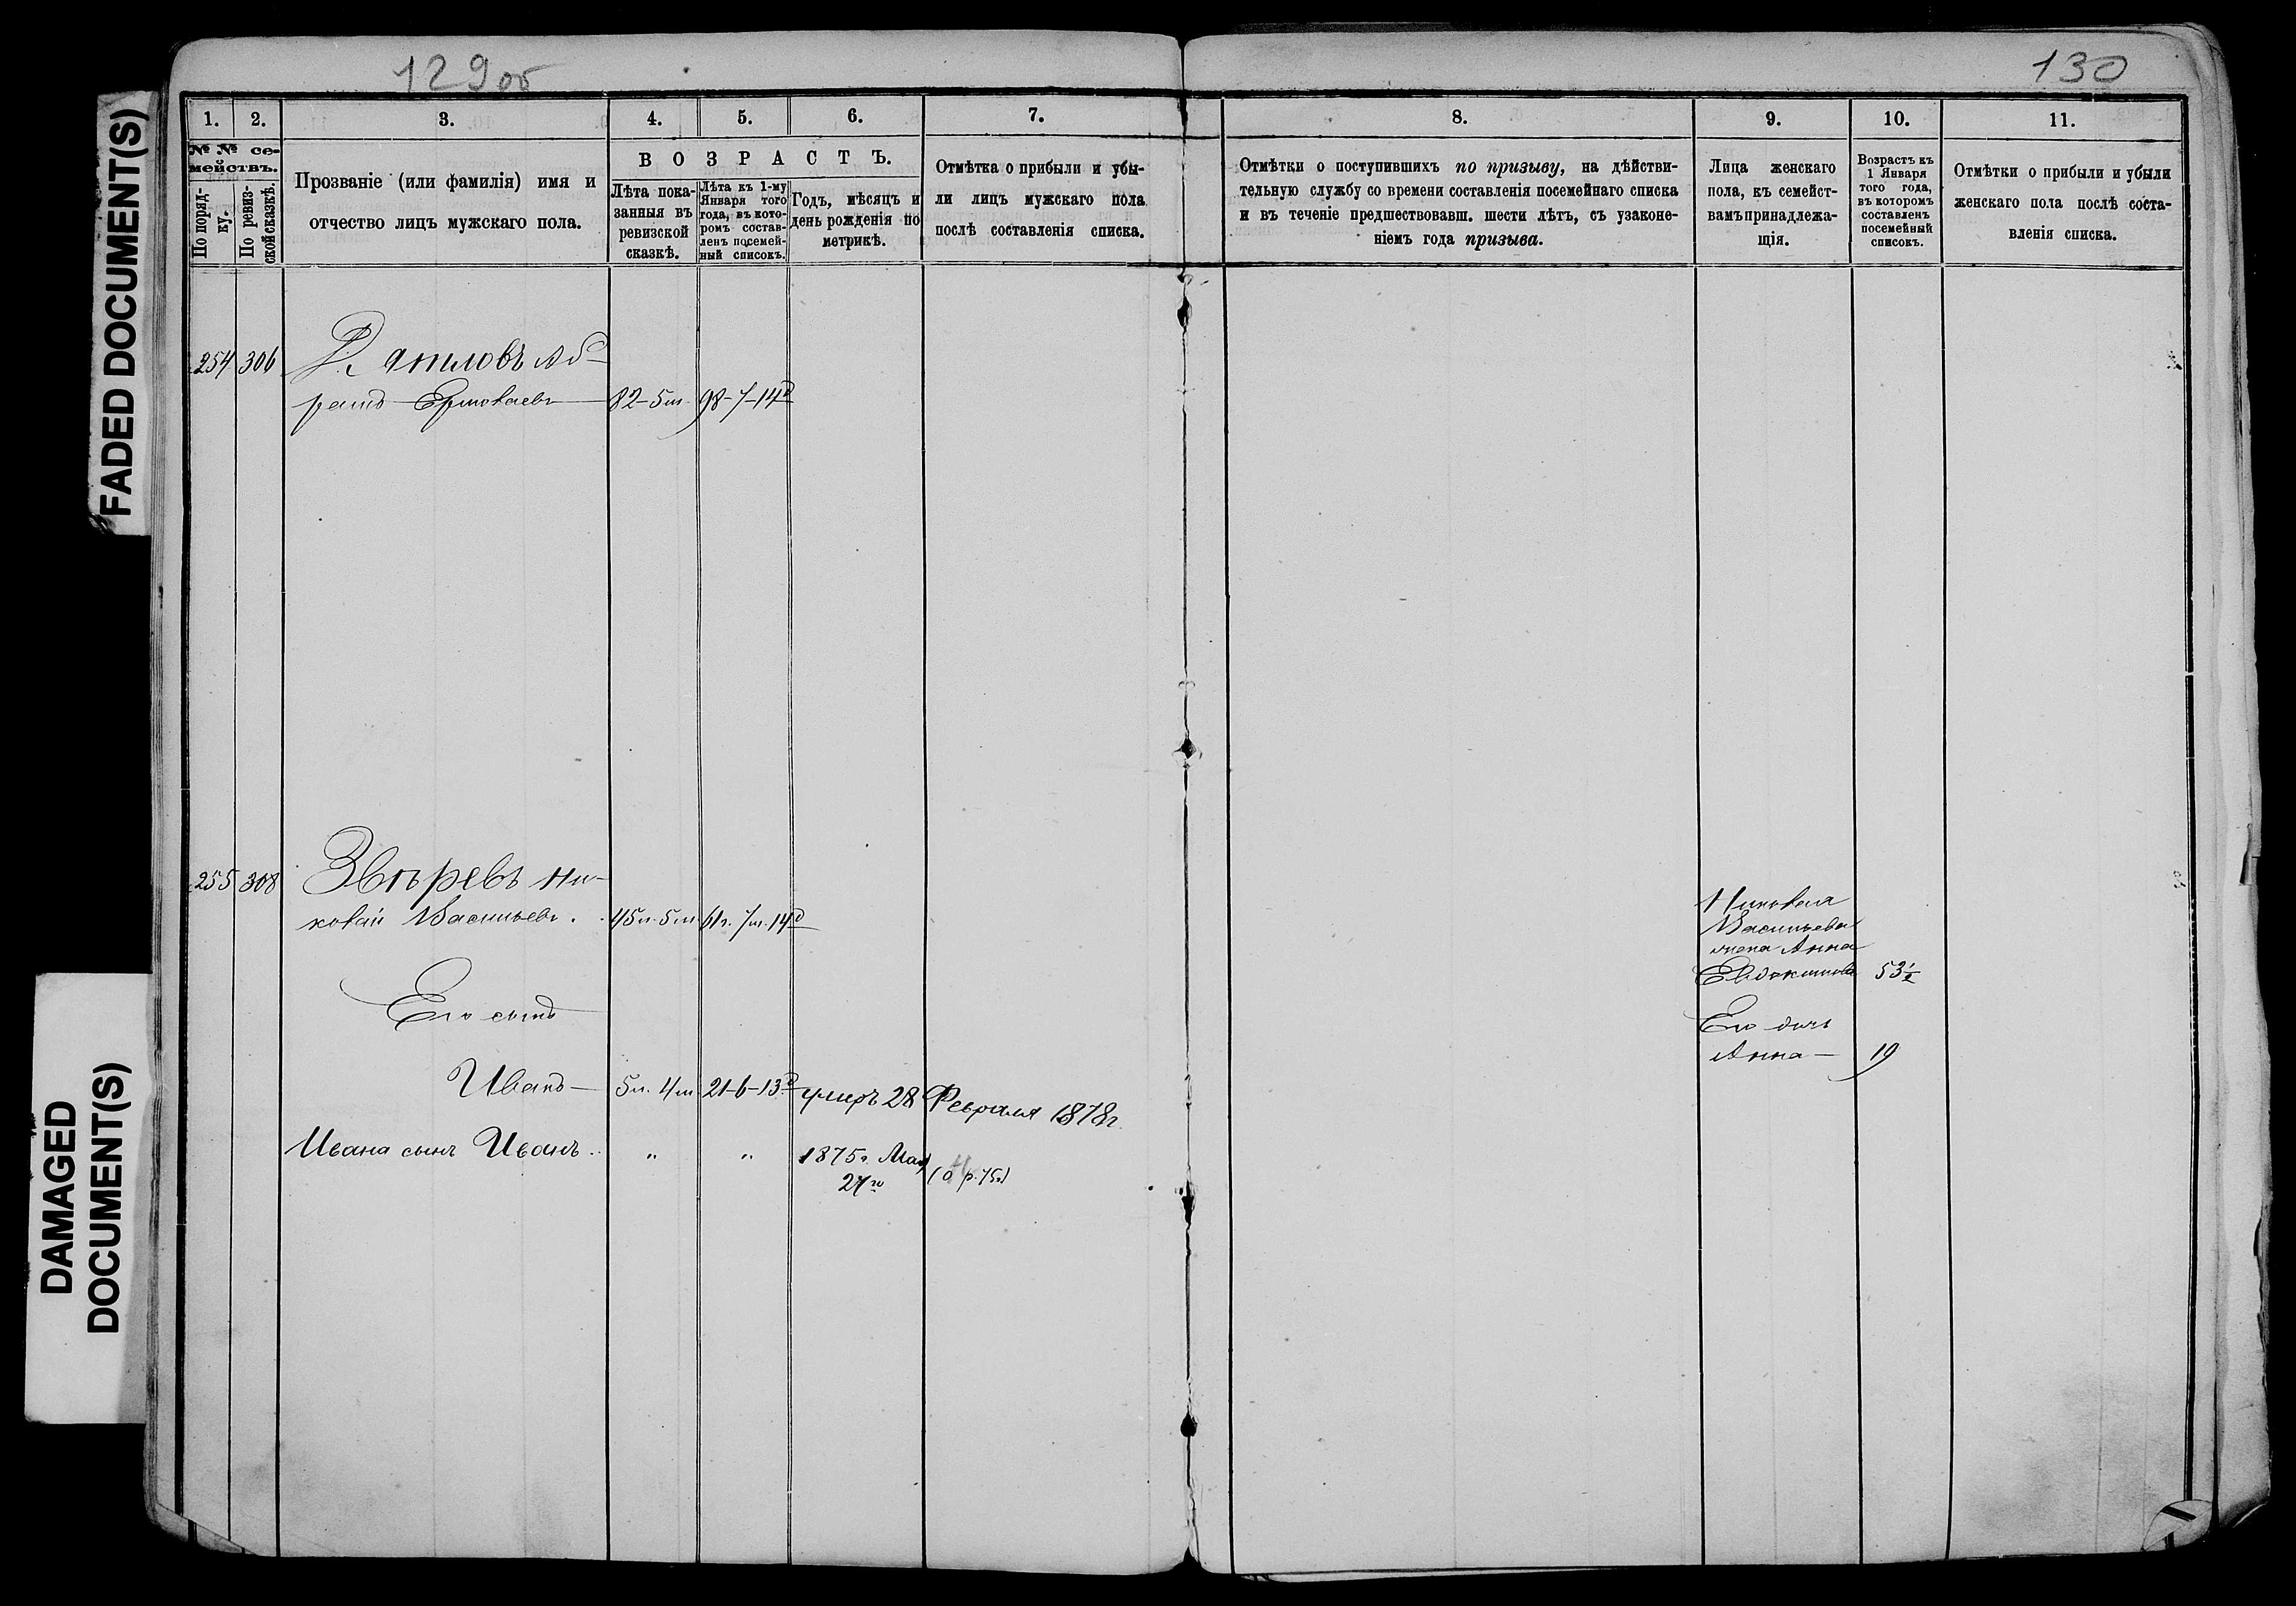 FADED DOCUMENT(S)
DAMAGED
DOCUMENT(S)
129 об
130
1.
2.
3.
4.
5.
6.
7.
8.
9.
10.
11.
№ № се-
мействъ.
По поряд-
ку.
По ревиз-
ской сказкѣ.
Прозваніе (или фамилія) имя и
отчество лицъ мужскаго пола.
ВОЗРАСТЪ.
Лѣта пока-
занныя въ
ревизской
сказкѣ.
Лѣта къ 1-му
Января того
года, въ кото-
ромъ состав-
ленъ посемей-
ный списокъ.
Годъ, мѣсяцъ и
день рожденія по
метрикѣ.
Отмѣтка о прибыли и убы-
ли лицъ мужскаго пола
послѣ составленія списка.
Отмѣтки о поступившихъ по призыву, на дѣйстви-
тельную службу со времени составленія посемейнаго списка
и въ теченіе предшествовавш. шести лѣтъ, съ узаконе-
ніемъ года призыва.
Лица женскаго
пола, къ семейст-
вамъ принадлежа-
щія.
Возрастъ къ
1 Января
того года,
въ которомъ
составленъ
посемейный
списокъ.
Отмѣтки о прибыли и убыли
женскаго пола послѣ соста-
вленія списка.
254 306
Аб-
рамъ Ермолаевъ 82-5м. 98-7-14д
255 308 Звѣревъ Ни-
колай Васильевъ. 45л. 5м. 61г. 7м. 14д
Его сынъ
Иванъ 5л. 4м 21-6-13д умеръ 28 Февраля 1878г.
Ивана сынъ Иванъ „ „ 1875г. Мая
27го
Николая
Васильева
жена Анна
Евдокимова 53½
Его дочь
Анна 19